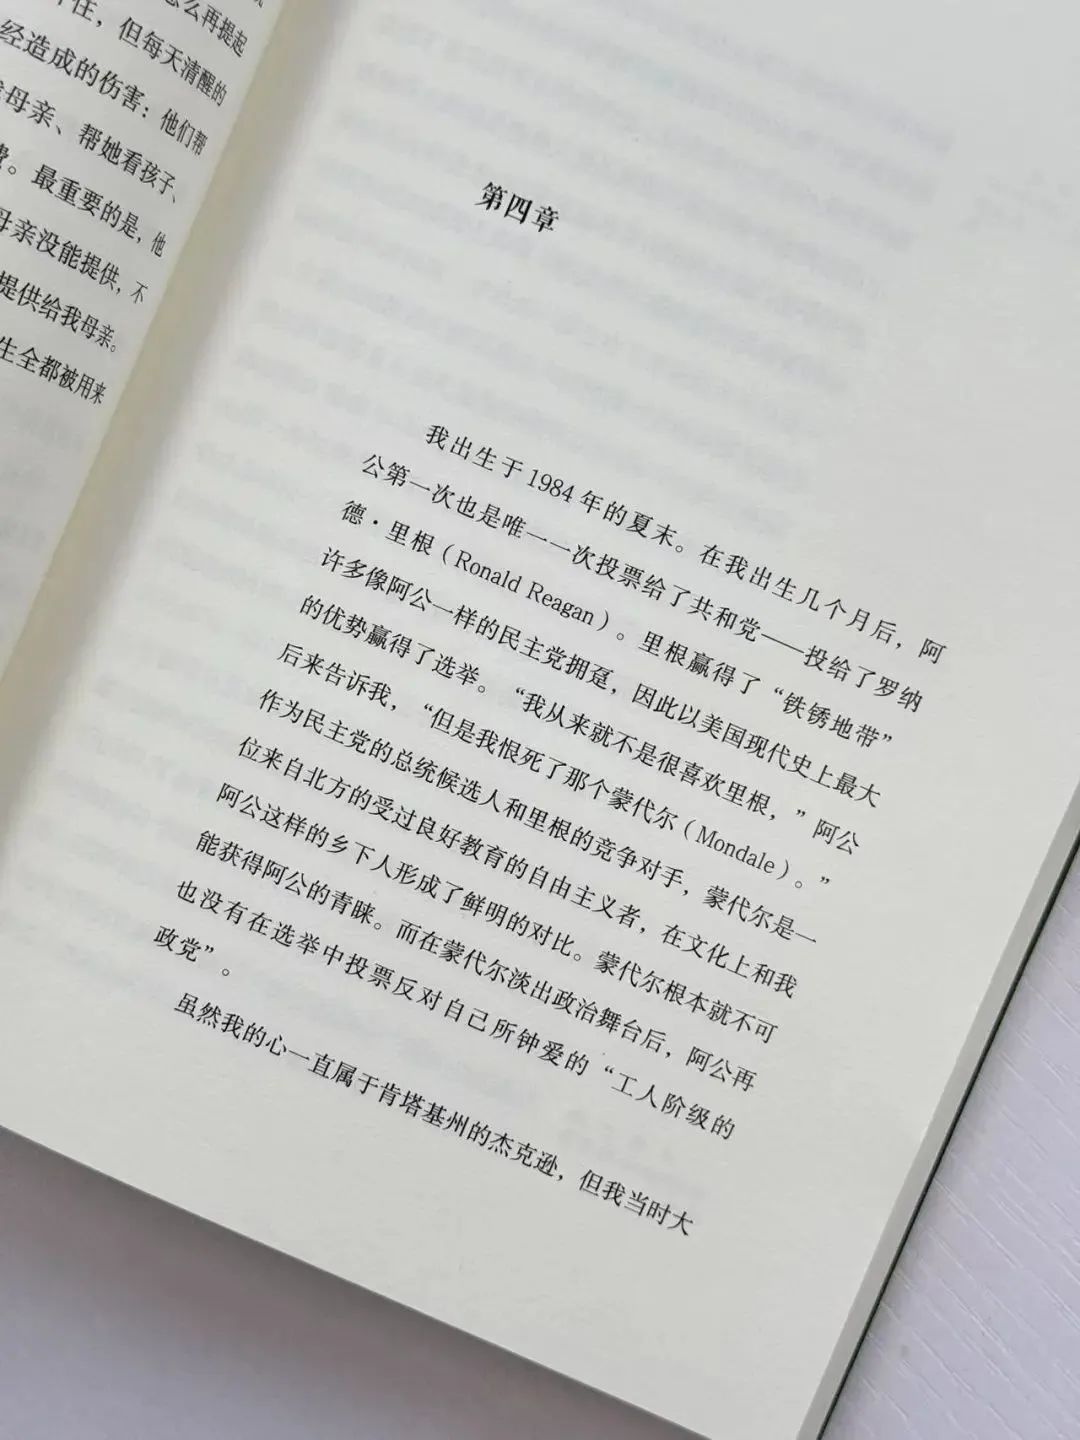 怎么再提起
住，但每天清醒的
经造成的伤害：他们帮
母亲、帮她看孩子、
。最重要的是，他
母亲没能提供，不
提供给我母亲。
生全都被用来
第四章
我出生于1984年的夏末。在我出生几个月后，阿
公第一次也是唯一一次投票给了共和党——投给了罗纳
德·里根（Ronald Reagan）。里根赢得了“铁锈地带”
许多像阿公一样的民主党拥趸，因此以美国现代史上最大
的优势赢得了选举。“我从来就不是很喜欢里根，”阿公
后来告诉我，“但是我恨死了那个蒙代尔（Mondale）。”
作为民主党的总统候选人和里根的竞争对手，蒙代尔是一
位来自北方的受过良好教育的自由主义者，在文化上和我
阿公这样的乡下人形成了鲜明的对比。蒙代尔根本就不可
能获得阿公的青睐。而在蒙代尔淡出政治舞台后，阿公再
也没有在选举中投票反对自己所钟爱的“工人阶级的
政党”。
虽然我的心一直属于肯塔基州的杰克逊，但我当时大